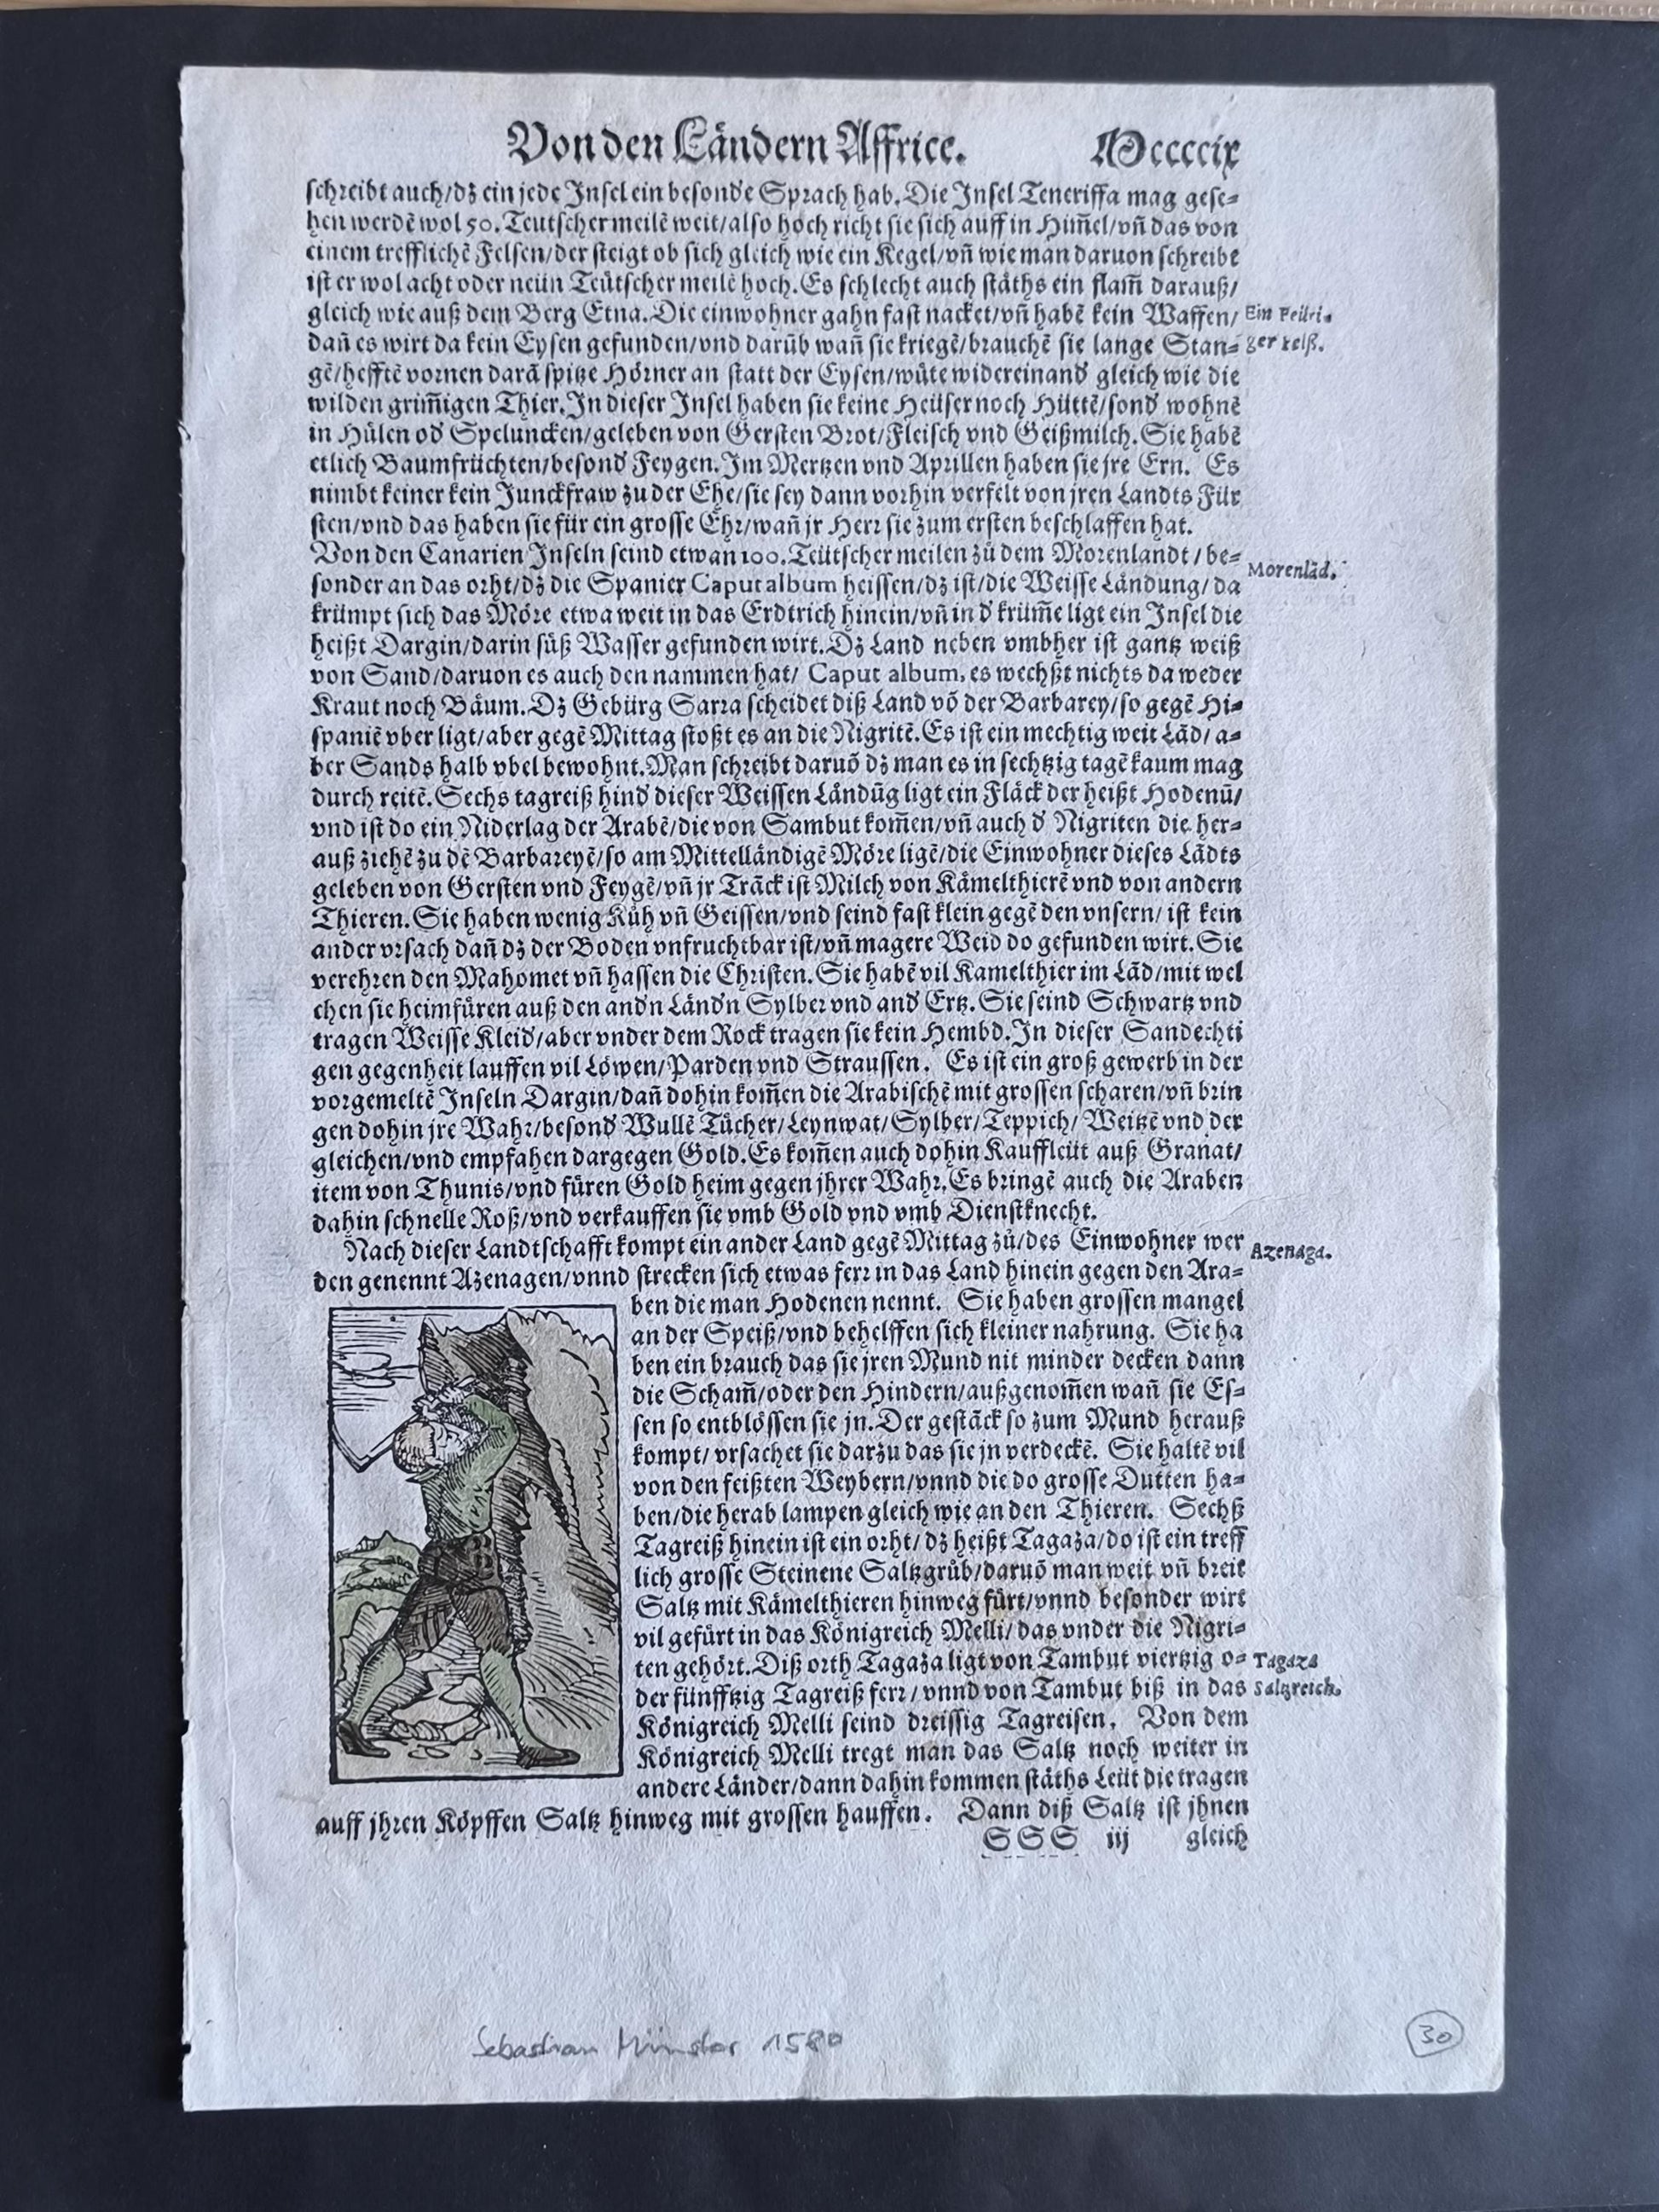 Von den Ländern Affrice. Mccccix
schreibt auch/dz ein jede Insel ein besonde Sprach hab. Die Insel Teneriffa mag gese⸗
hen werdē wol 50. Teutscher meilē weit/also hoch richt sie sich auff in Him̃el/vñ das von
einem trefflichē Felsen/der steigt ob sich gleich wie ein Kegel/vñ wie man daruon schreibe
ist er wol acht oder neün Teütscher meilē hoch. Es schlecht auch stäths ein flam̃ darauß/
gleich wie auß dem Berg Etna. Die einwohner gahn fast nacket/vñ habē kein Waffen/ Ein Feüri⸗
dañ es wirt da kein Eysen gefunden/vnd darüb wañ sie kriegē/brauchē sie lange Stan⸗ ger Felß.
gē/hefftē vornen darā spitze Hörner an statt der Eysen/wüte widereinand' gleich wie die
wilden grim̃igen Thier. In dieser Insel haben sie keine Heüser noch Hüttē/sond' wohnē
in Hülen od' Speluncken/geleben von Gersten Brot/Fleisch vnd Geißmilch. Sie habē
etlich Baumfrüchten/besond' Feygen. Im Mertzen vnd Aprillen haben sie jre Ern. Es
nimbt keiner kein Junckfraw zu der Ehe/sie sey dann vorhin verfelt von jren Landts Für
sten/vnd das haben sie für ein grosse Ehr/wañ jr Herr sie zum ersten beschlaffen hat.
Von den Canarien Inseln seind etwan 100. Teütscher meilen zů dem Morenlandt/be⸗ Morenlād.
sonder an das orht/dz die Spanier Caput album heissen/dz ist/die Weisse Ländung/da
krümpt sich das Möre etwa weit in das Erdtrich hinein/vñ in d' krüm̃e ligt ein Insel die
heißt Dargin/darin süß Wasser gefunden wirt. Dz Land neben vmbher ist gantz weiß
von Sand/daruon es auch den nammen hat/ Caput album, es wechßt nichts da weder
Kraut noch Bäum. Dz Gebürg Sarra scheidet diß Land vō der Barbarey/so gegē Hi⸗
spaniē vber ligt/aber gegē Mittag stoßt es an die Nigritē. Es ist ein mechtig weit Lād/a⸗
ber Sands halb vbel bewohnt. Man schreibt daruō dz man es in sechtzig tagē kaum mag
durch reitē. Sechs tagreiß hind' dieser Weissen Ländūg ligt ein Fläck der heißt Hodenū/
vnd ist do ein Niderlag der Arabē/die von Sambut kom̃en/vñ auch d' Nigriten die her⸗
auß ziehē zu dē Barbareyē/so am Mittelländigē Möre ligē/die Einwohner dieses Lādts
geleben von Gersten vnd Feygē/vñ jr Trāck ist Milch von Kämelthierē vnd von andern
Thieren. Sie haben wenig Kůh vñ Geissen/vnd seind fast klein gegē den vnsern/ ist kein
ander vrsach dañ dz der Boden vnfruchtbar ist/vñ magere Weid do gefunden wirt. Sie
verehren den Mahomet vñ hassen die Christen. Sie habē vil Kamelthier im Lād/mit wel
chen sie heimfüren auß den and'n Länd'n Sylber vnd and' Ertz. Sie seind Schwartz vnd
tragen Weisse Kleid'/aber vnder dem Rock tragen sie kein Hembd. In dieser Sandechti
gen gegenheit lauffen vil Löwen/Parden vnd Straussen. Es ist ein groß gewerb in der
vorgemeltē Inseln Dargin/dañ dohin kom̃en die Arabischē mit grossen scharen/vñ brin
gen dohin jre Wahr/besond' Wullē Tücher/Leynwat/Sylber/Teppich/ Weitzē vnd der
gleichen/vnd empfahen dargegen Gold. Es kom̃en auch dohin Kauffleüt auß Granat/
item von Thunis/vnd füren Gold heim gegen jhrer Wahr. Es bringē auch die Araben
dahin schnelle Roß/vnd verkauffen sie vmb Gold vnd vmb Dienstknecht.
Nach dieser Landtschafft kompt ein ander Land gegē Mittag zů/des Einwohner wer Azenaga.
den genennt Azenagen/vnnd strecken sich etwas ferr in das Land hinein gegen den Ara⸗
ben die man Hodenen nennt. Sie haben grossen mangel
an der Speiß/vnd behelffen sich kleiner nahrung. Sie ha
ben ein brauch das sie jren Mund nit minder decken dann
die Scham̃/oder den Hindern/außgenom̃en wañ sie Es⸗
sen so entblössen sie jn. Der gestäck so zum Mund herauß
kompt/ vrsachet sie darzu das sie jn verdeckē. Sie haltē vil
von den feißten Weybern/vnnd die do grosse Dutten ha⸗
ben/die herab lampen gleich wie an den Thieren. Sechß
Tagreiß hinein ist ein orht/dz heißt Tagaza/do ist ein treff
lich grosse Steinene Saltzgrůb/daruō man weit vñ breit
Saltz mit Kämelthieren hinweg fürt/vnnd besonder wirt
vil gefürt in das Königreich Melli/das vnder die Nigri⸗
ten gehört. Diß orth Tagaza ligt von Tambut viertzig o⸗ Tagaza
der fünfftzig Tagreiß ferr/vnnd von Tambut biß in das Saltzreich.
Königreich Melli seind dreissig Tagreisen. Von dem
Königreich Melli tregt man das Saltz noch weiter in
andere Länder/dann dahin kommen stäths Leüt die tragen
auff jhren Köpffen Saltz hinweg mit grossen hauffen. Dann diß Saltz ist jhnen
SSS iij gleich
Sebastian Münster 1580
30